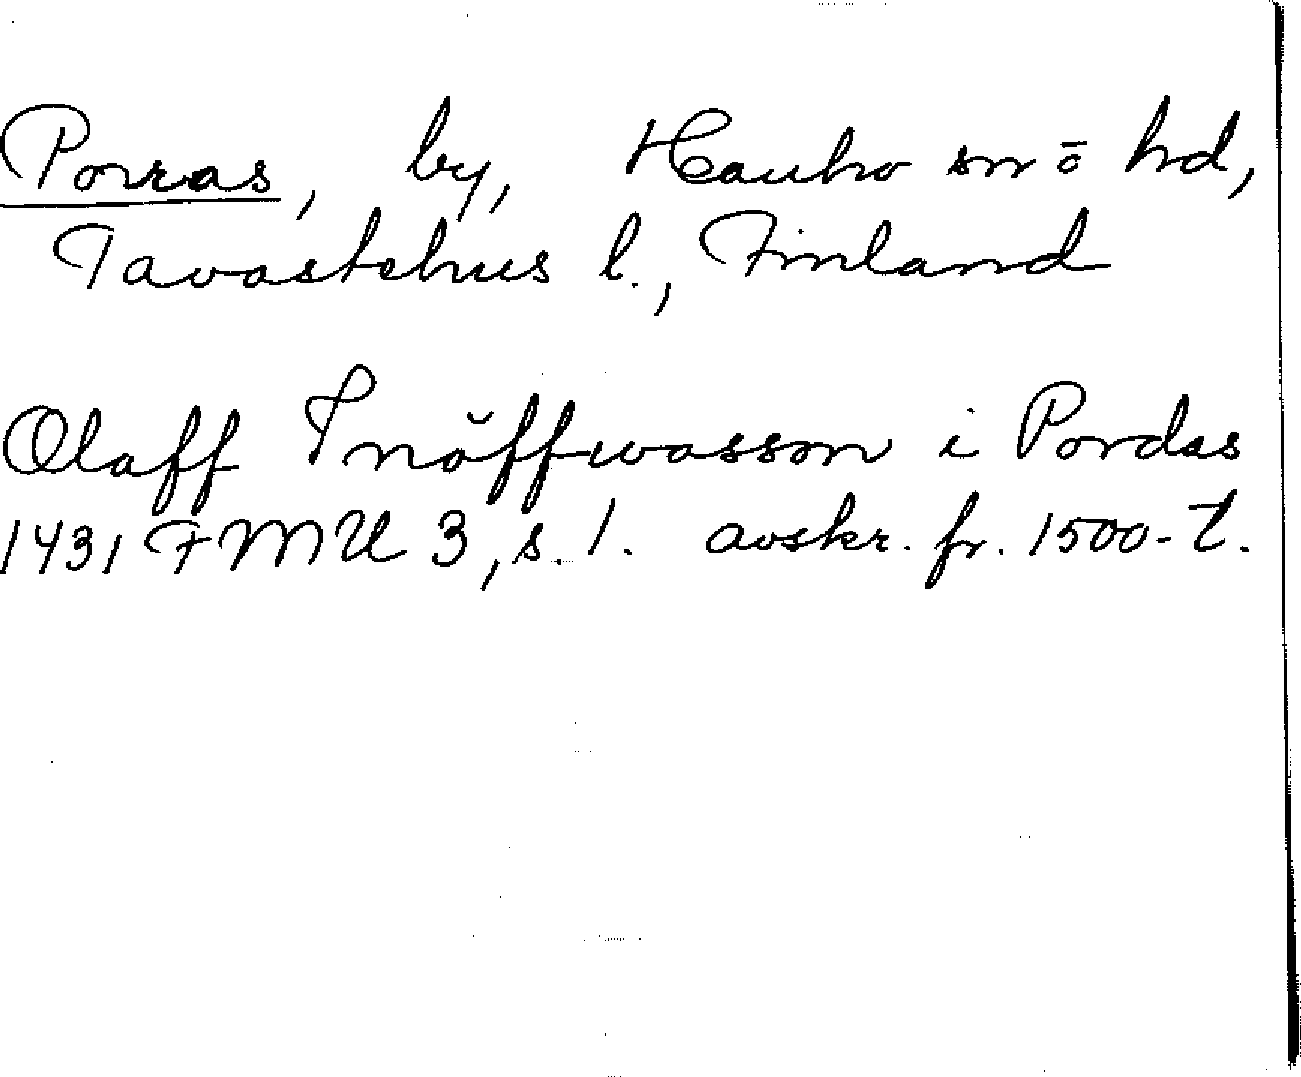 Porras, by, Hauho sn o hd,
Tavastehus l., Finland
Olaff Inäffwasson i Pordas
1431 FMU 3, s. 1. avskr. fr. 1500-t.